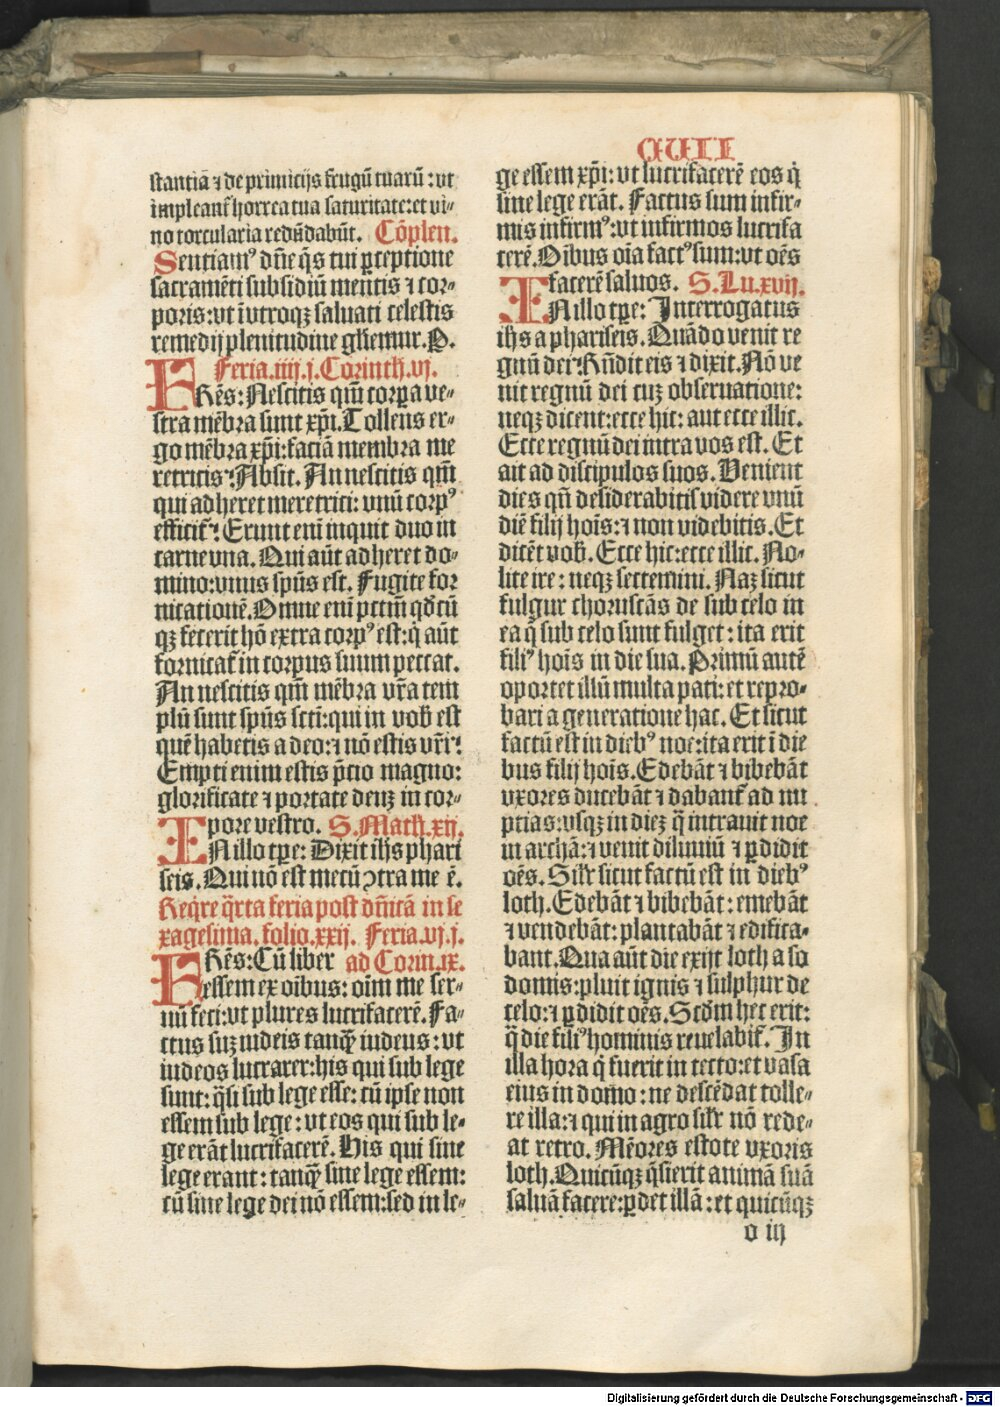 CVIII
stantia ⁊ de primicijs frugū tuarū : vt
impleant̄ horrea tua saturitate: et vi⸗
no torcularia redūdabūt. Cōplen.
Sentiamꝰ dn̄e q̄s tui ꝑceptione
sacramēti subsidiū mentis ⁊ cor⸗
poris: vt ī vtroqꝫ saluati celestis
remedij plenitudine gl̄iemur. P.
Feria.iiij.j. Corinth.vj.
FRēs: Nescitis qm̄ corꝑa ve⸗
stra mēbra sunt xp̄i. Tollens er⸗
go mēbra xp̄i: faciā membra me
retricis? Absit. An nescitis qm̄
qui adheret meretrici: vnū corpꝰ
efficit̄? Erunt eni inquit duo in
carne vna. Qui aūt adheret do⸗
mino: vnus sp̄us est. Fugite for
nicationē. Omne eni pctm̄ qd̄cū
qꝫ fecerit hō extra corpꝰ est: q̇ aūt
fornicat̄ in corpus suum peccat.
An nescitis qm̄ mēbra vr̄a tem
plū sunt sp̄us scti: qui in vob̄ est
quē habetis a deo: ⁊ nō estis vr̄i?
Empti enim estis p̄cio magno:
glorificate ⁊ portate deuꝫ in cor⸗
pore vestro. S. Math.xij.
IN illo tꝑe: Dixit ih̄s phari
seis. Qui nō est mecū ꝯtra me ē.
Reqͥre q̄rta feria post dn̄icā in se
xagesima. folio.xxij. Feria.vj.j.
FRēs: Cū liber ad Corin.ix.
essem ex oībus: oīm me ser⸗
uū feci: vt plures lucrifacerē. Fa⸗
ctus suꝫ iudeis tanq̄ iudeus : vt
iudeos lucrarer: his qui sub lege
sunt: q̄si sub lege esse: cū ipse non
essem sub lege : vt eos qui sub le⸗
ge erāt lucrifacerē. His qui sine
lege erant : tanq̄ sine lege essem:
cū sine lege dei nō essem: sed in le⸗
ge essem xp̄i: vt lucrifacerē eos q̇
sine lege erāt. Factus sum infir⸗
mis infirmꝰ: vt infirmos lucrifa
cerē. Oībus oīa factꝰ sum: vt oēs
facerē saluos. S. Lu.xvij.
IN illo tꝑe: Interrogatus
ih̄s a phariseis. Quādo venit re
gnū dei? Rn̄dit eis ⁊ dixit. Nō ve
nit regnū dei cuꝫ obseruatione:
neqꝫ dicent: ecce hic: aut ecce illic.
Ecce regnū dei intra vos est. Et
ait ad discipulos suos. Venient
dies qn̄ desiderabitis videre vnū
diē filij hoīs: ⁊ non videbitis. Et
dicēt vob̄. Ecce hic: ecce illic. No⸗
lite ire : neqꝫ sectemini. Naꝫ sicut
fulgur choruscās de sub celo in
ea q̄ sub celo sunt fulget : ita erit
filiꝰ hoīs in die sua. Primū autē
oportet illū multa pati: et repro⸗
bari a generatione hac. Et sicut
factū est in diebꝰ noe: ita erit ī die
bus filij hoīs. Edebāt ⁊ bibebāt
vxores ducebāt ⁊ dabant̄ ad nu
ptias: vsqꝫ in dieꝫ q̄ intrauit noe
in archā: ⁊ venit diluuiū ⁊ ꝑdidit
oēs. Silr̄ sicut factū est in diebꝰ
loth. Edebāt ⁊ bibebāt : emebāt
⁊ vendebāt: plantabāt ⁊ edifica⸗
bant. Qua aūt die exijt loth a so
domis: pluit ignis ⁊ sulphur de
celo: ⁊ ꝑdidit oēs. Scd̄m hec erit:
q̄ die filiꝰ hominis reuelabit̄. In
illa hora q̇ fuerit in tecto: et vasa
eius in domo : ne descēdat tolle⸗
re illa: ⁊ qui in agro silr̄ nō rede⸗
at retro. Mēores estote vxoris
loth. Quicūqꝫ q̄sierit animā suā
saluā facere: ꝑdet illā : et quicūqꝫ
o iij
Digitalisierung gefördert durch die Deutsche Forschungsgemeinschaft - DFG